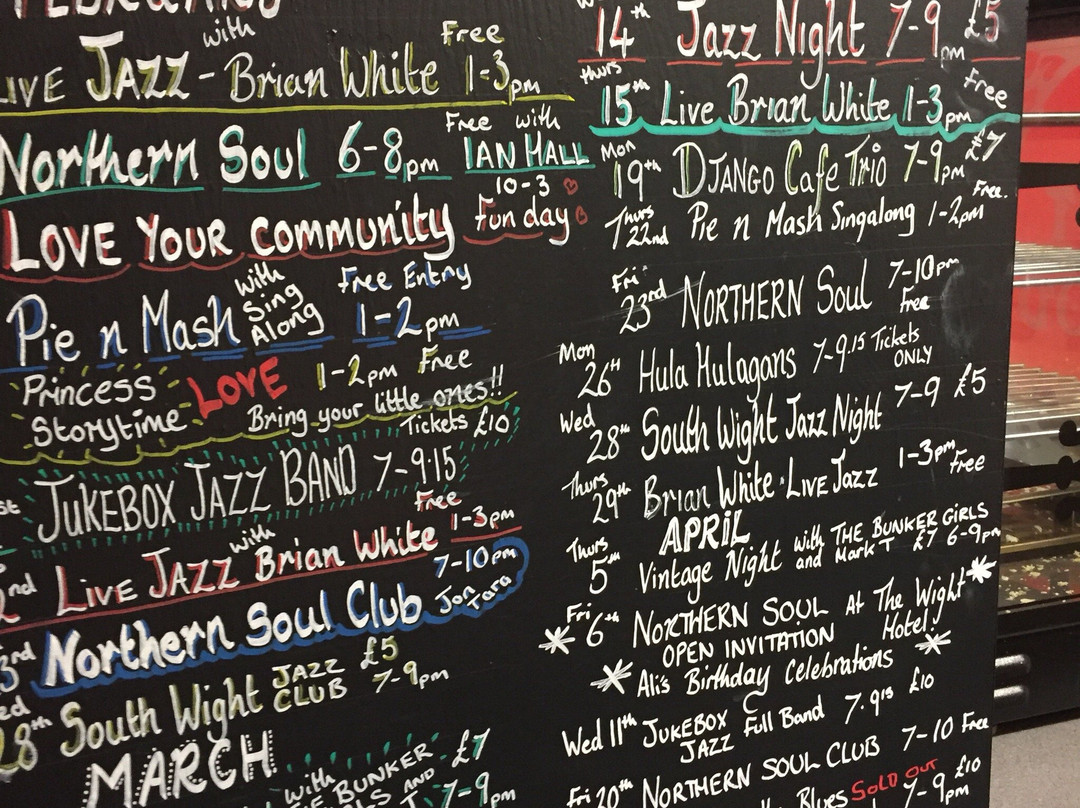 FEBRUARY
LIVE JAZZ with - Brian White 1-3pm Free
Northern Soul 6-8pm Free with IAN HALL
LOVE YOUR community Funday 10-3
Pie n Mash with Sing Along Free Entry 1-2pm
Princess Storytime LOVE 1-2pm Free
Bring your little ones!!
JUKEBOX JAZZ BAND 7-9.15 Tickets £10
LIVE JAZZ with Brian White Free 1-3pm
Northern Soul Club 7-10pm Jon Fara
28th South Wight JAZZ CLUB £5 7-9pm
MARCH
with THE BUNKER GIRLS AND £7 7-9pm
14th Jazz Night 7-9pm £5
Thurs 15th Live Brian White 1-3pm Free
Mon 19th DJANGO Cafe Trio 7-9pm £7
Thurs 22nd Pie n Mash Singalong 1-2pm Free.
Fri 23rd NORTHERN Soul 7-10pm Free
Mon 26th Hula Hulagans 7-9.15 Tickets ONLY
Wed 28th South Wight Jazz Night 7-9 £5
Thurs 29th Brian White · LIVE JAZZ 1-3pm Free
APRIL
Thurs 5th Vintage Night with THE BUNKER GIRLS and Mark T £7 6-9pm
Fri 6th NORTHERN SOUL At The Wight Hotel!
OPEN INVITATION
Ali's Birthday Celebrations
Wed 11th JUKEBOX JAZZ C Full Band 7.9.15 £10
Fri 20th NORTHERN SOUL CLUB 7-10 Free
Blues SOLD OUT 7-9pm £10